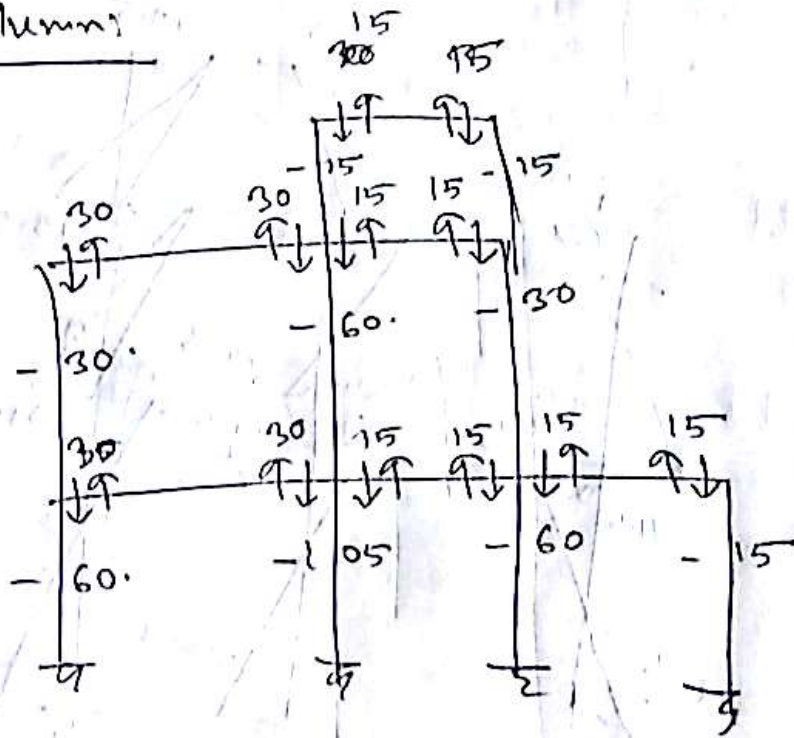 15
15
- 15 - 15
30 30 15 15
- 30. - 60. - 30
30 30 15 15 15 15
- 60. - 105 - 60 - 15